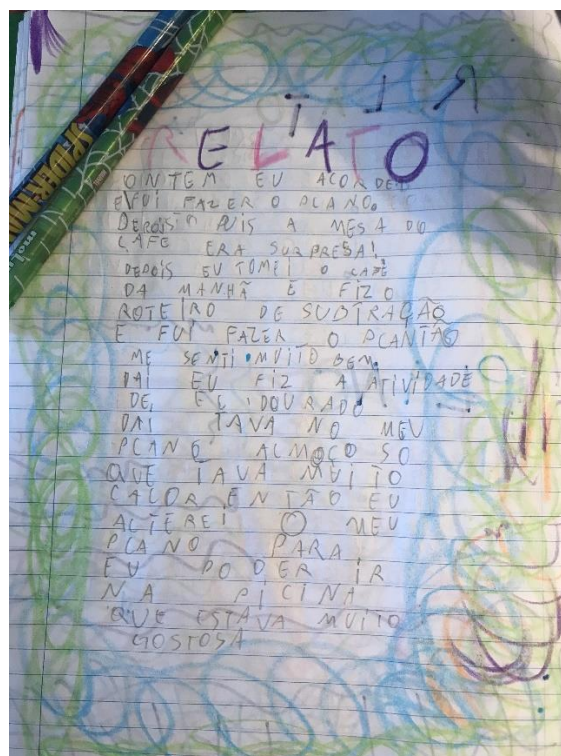 SPIDER-MAN
RELATO
ONTEM EU ACORDEI
E FUI FAZER O PLANO.
DEPOIS PUIS A MESA DO
CAFE ERA SURPRESA!
DEPOIS EU TOMEI O CAFÉ
DA MANHÃ E FIZ O
ROTEIRO DE SUBTRAÇÃO
E FUI FAZER O PLANTÃO
ME SENTI MUITO BEM.
DAI EU FIZ A ATIVIDADE
DE EL DOURADO.
DAI TAVA NO MEU
PLANO ALMOÇO SO
QUE TAVA MUITO
CALOR ENTÃO EU
ALTEREI O MEU
PLANO PARA
EU PODER IR
NA PICINA
QUE ESTAVA MUITO
GOSTOSA